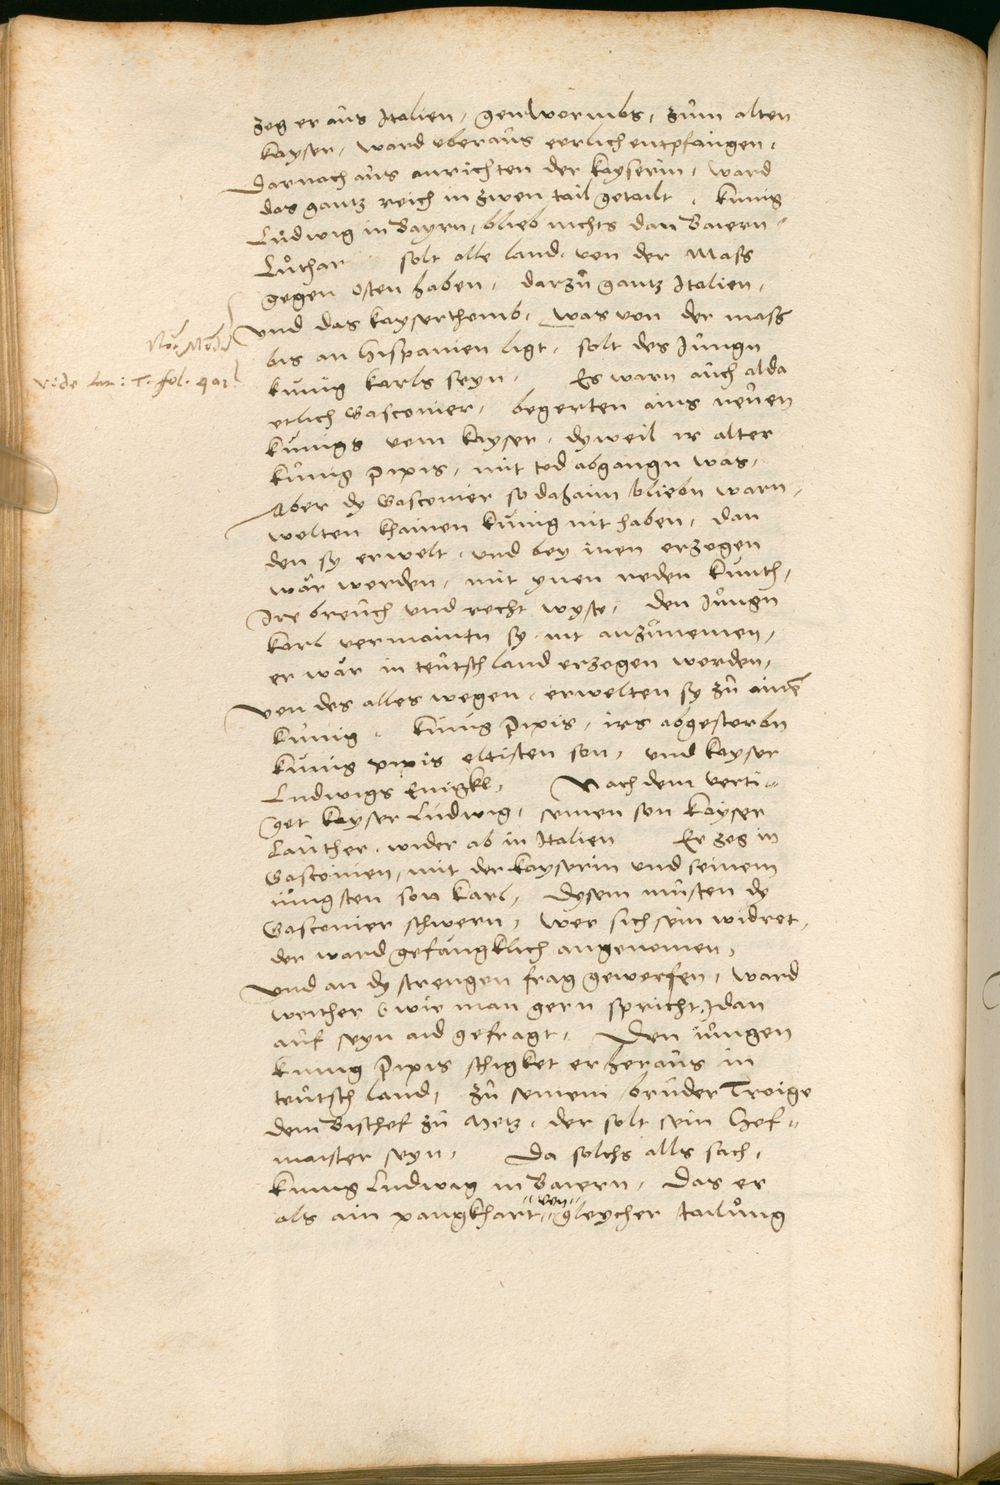 zog er aůs Italien, gen Wormbs, zům alten
kayser, ward uberaůs eerlich entpfangen,
Darnach aůs anrichten der kayserin, ward
das gantz reich in zwen tail getailt, kunig
Lůdwig in Bayrn, blieb nichts dan Baiern
Lůthar solt alle land, von der Mass
gegen osten haben, darzů gantz Italien,
und das kayserthomb, was von der mass
bis an Hispanien ligt, solt des Jůngn
vide fol. 402
kůnig karls seyn, Es warn aůch alda
etlich Gasconier, begerten ains neůen
kůnigs vom kayser, dyweil ir alter
kůnig Pipis, mit tod abgangn was,
Aber dy Gasconier so dahaim bliebn warn,
wolten khainen kůnig nit haben, dan
den sy erwelt, und bey inen erzogen
wår worden, mit ynen reden kůnth,
Ire breůch und recht wyste, den Jůngn
karl vermaintn sy nit anzůnemen,
er wår in teůtschland erzogen worden,
Von des alles wegen, erwelten sy zů ainē
kůnig, kůnig Pipis, irs abgestorbn
kůnig pipis eltisten son, und kayser
Ludwigs Enigkl, Nach dem verti=
get kayser Lůdwig, seinen son kayser
Laůther, wider ab in Italien Er zog in
Gasconien, mit der kayserin und seinem
iůngsten son karl, Dysem můsten dy
Gasconier schwern, wer sich sein widret,
der ward gefůngklich angenomen,
und an dy strengen frag geworfen, ward
weither (wie man gern spricht) dan
aůf seyn aid gefragt, Den iůngen
kunig Pipis schigket er heraůs in
teůtschland, zů seinem brůder Troige
dem Bischof zů Metz, der solt sein Hof=
maister seyn, Da solchs alls sach,
kunig Ludwig in Baiern, Das er
von
als ain pangkhart gleycher tailůng